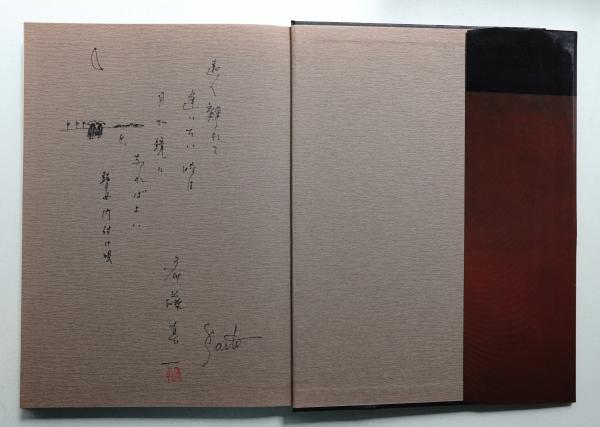 遠く離れて
逢いたい時は
月が鏡に
なればよい
瞽女門付け唄
斎藤真一
Saito